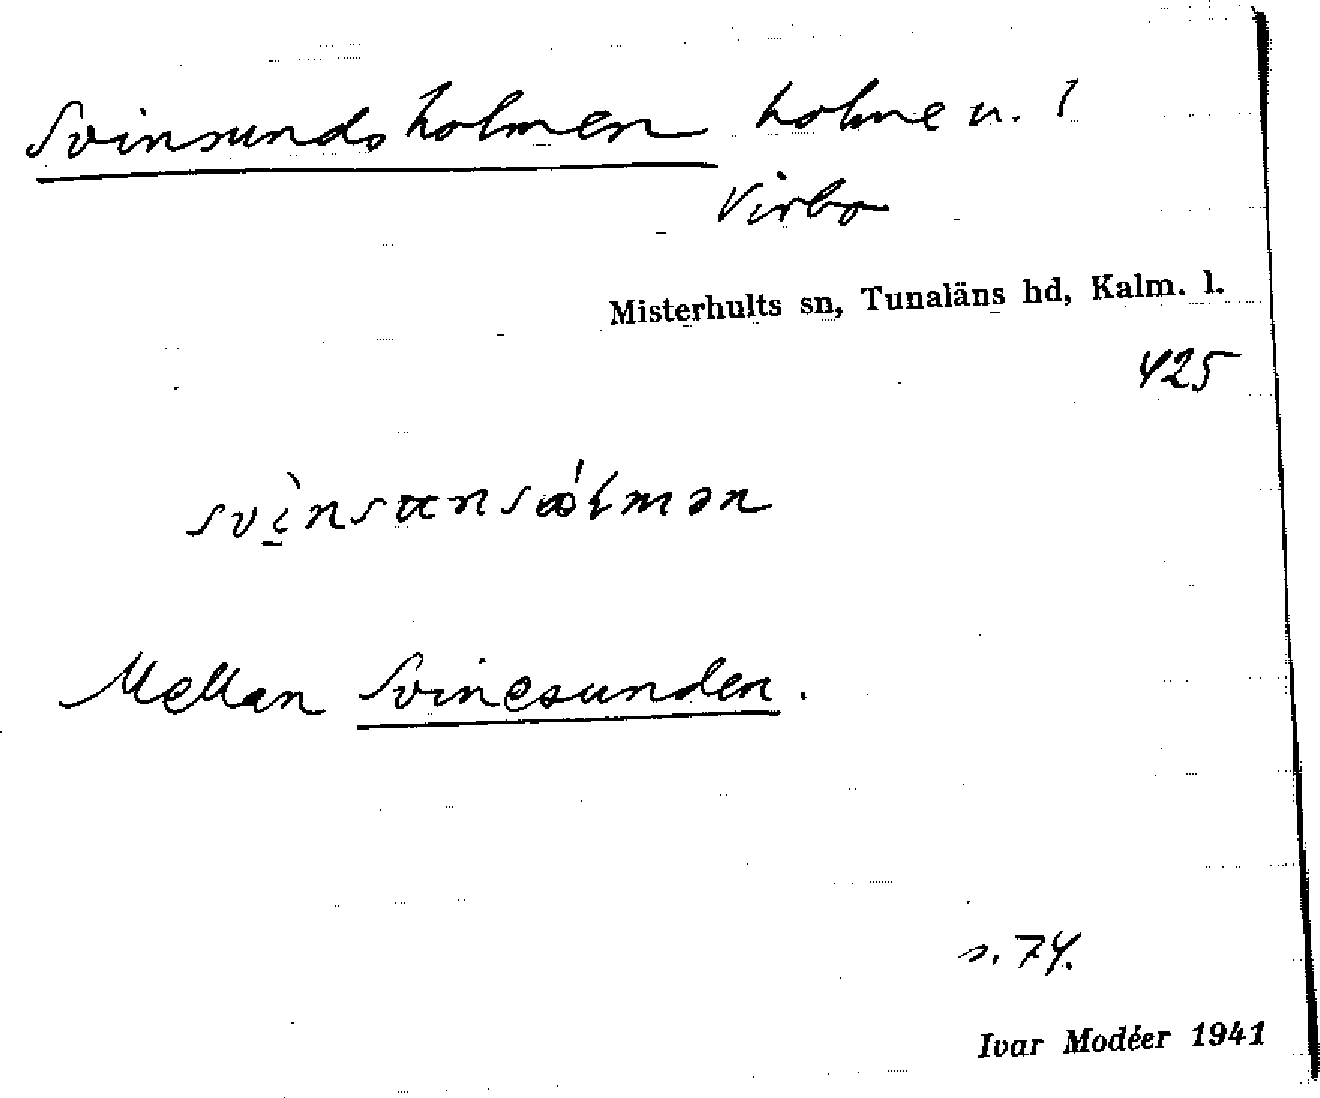 Svinsundsholmen holme u. l
Virbo
Misterhults sn, Tunaläns hd, Kalm. l.
425
Mellan Svinesunden.
s. 74.
Ivar Modéer 1941